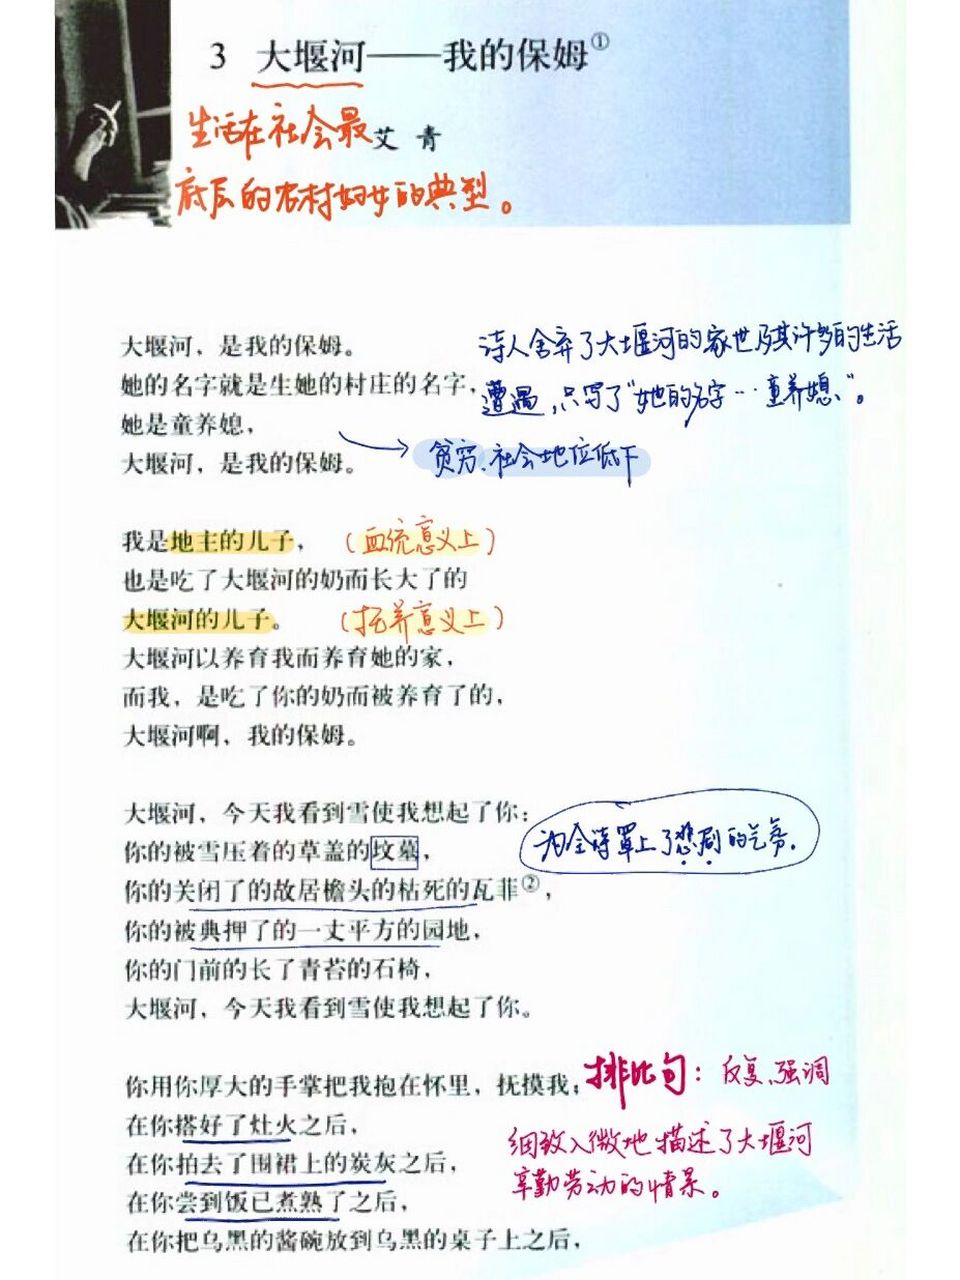 3 大堰河——我的保姆①
生活在社会最
艾 青
底层的农村妇女的典型。
大堰河，是我的保姆。
她的名字就是生她的村庄的名字，
她是童养媳，
大堰河，是我的保姆。
诗人舍弃了大堰河的家世及其许多的生活
遭遇，只写了“她的名字…童养媳”。
贫穷、社会地位低下
我是地主的儿子，（血统意义上）
也是吃了大堰河的奶而长大了的
大堰河的儿子。（抚养意义上）
大堰河以养育我而养育她的家，
而我，是吃了你的奶而被养育了的，
大堰河啊，我的保姆。
大堰河，今天我看到雪使我想起了你：
你的被雪压着的草盖的坟墓，
为全诗罩上了悲剧的气氛。
你的关闭了的故居檐头的枯死的瓦菲②，
你的被典押了的一丈平方的园地，
你的门前的长了青苔的石椅，
大堰河，今天我看到雪使我想起了你。
你用你厚大的手掌把我抱在怀里，抚摸我；
排比句：反复、强调
在你搭好了灶火之后，
在你拍去了围裙上的炭灰之后，
在你尝到饭已煮熟了之后，
在你把乌黑的酱碗放到乌黑的桌子上之后，
细致入微地描述了大堰河
辛勤劳动的情景。